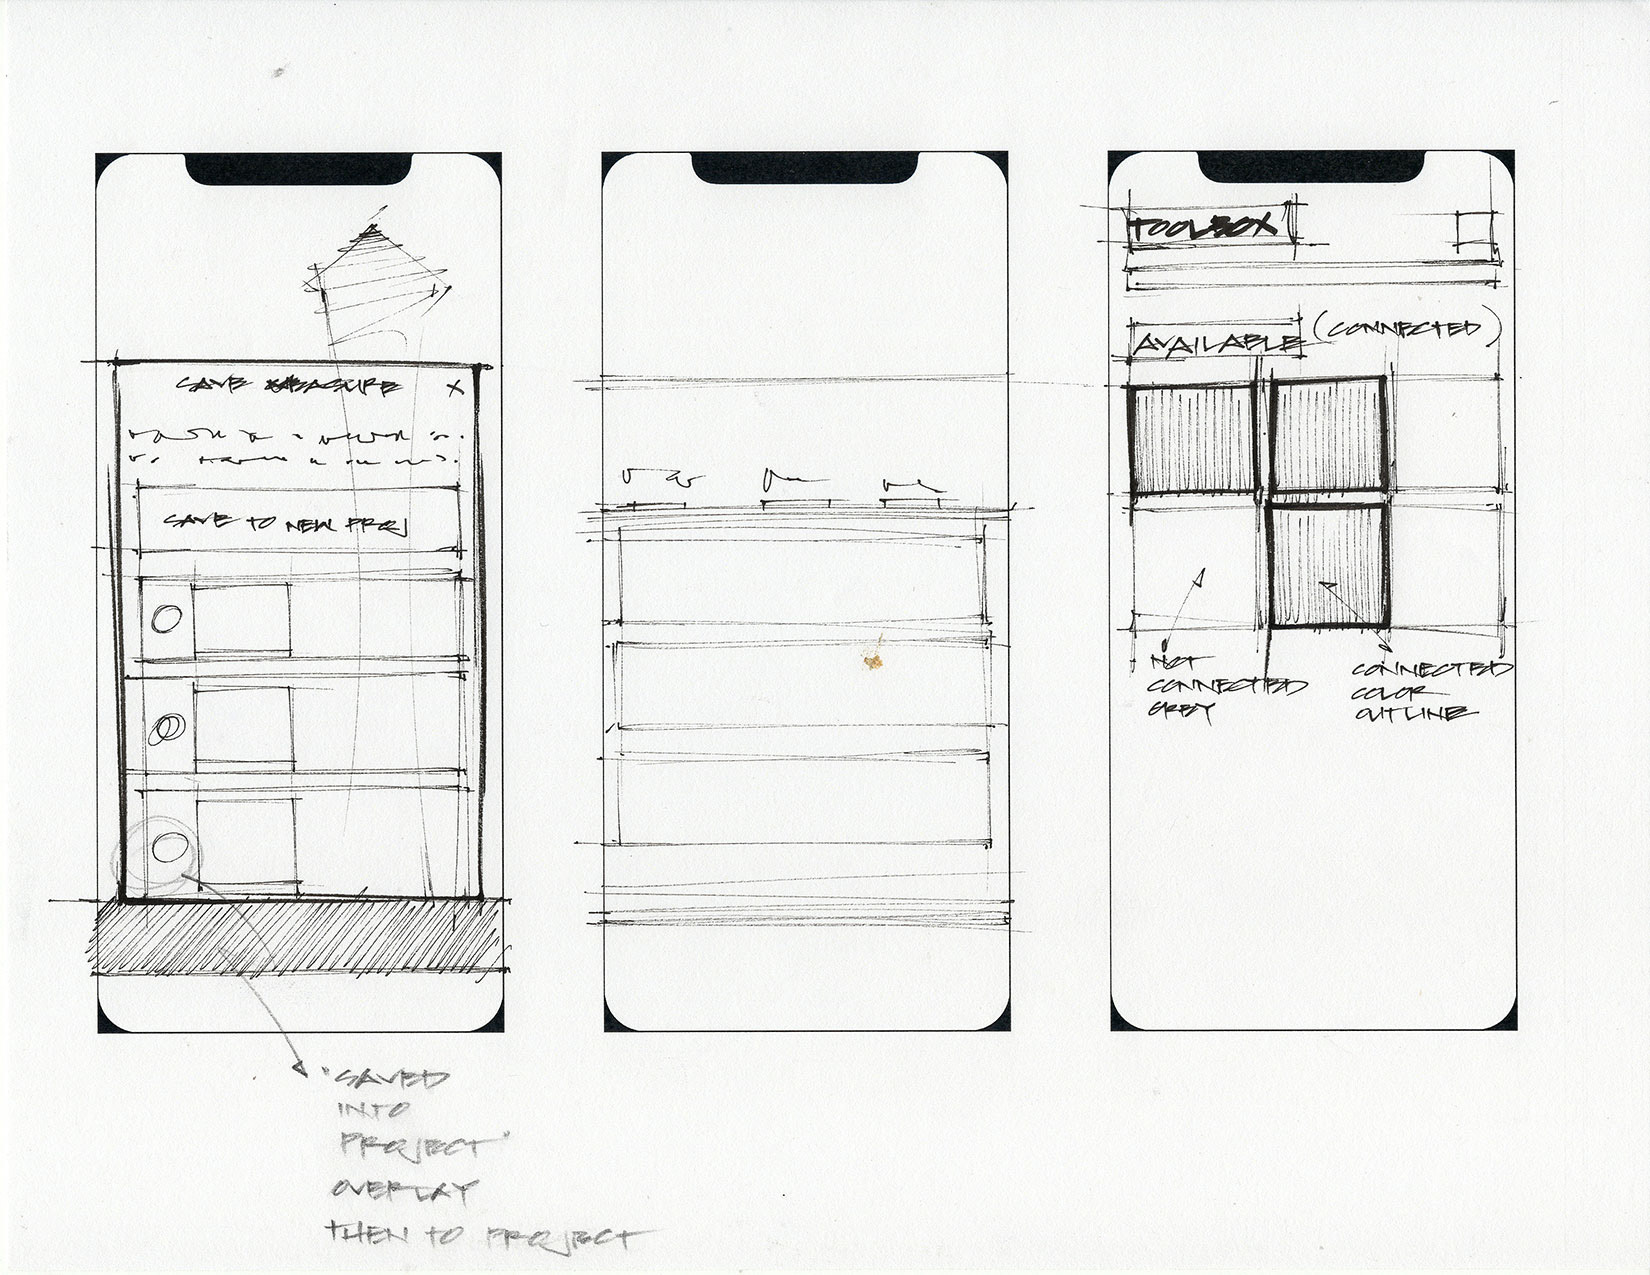 SAVE MEASURE X
SAVE TO NEW PROJ
TOOLBOX
AVAILABLE (CONNECTED)
NOT
CONNECTED
GREY
CONNECTED
COLOR
OUTLINE
"SAVED
INTO
PROJECT"
OVERLAY
THEN TO PROJECT